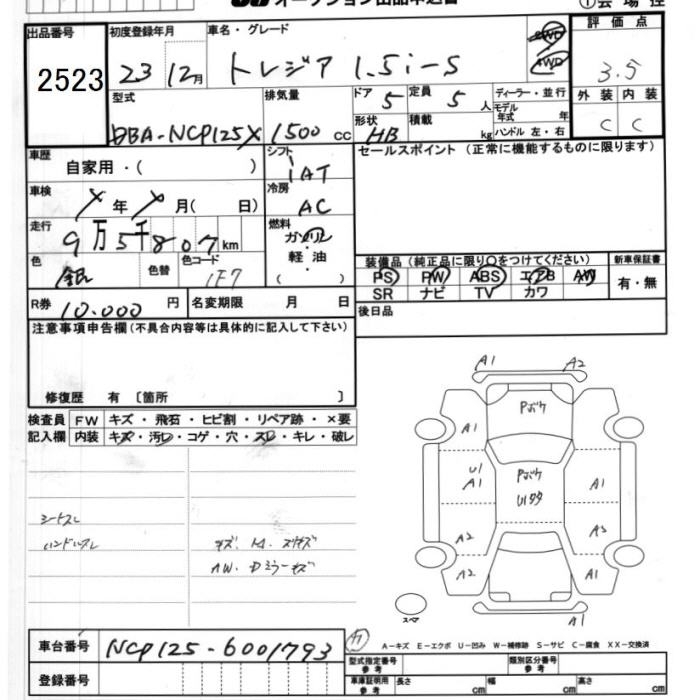 オークション出品申込書 ①会場控
出品番号 初度登録年月 車名・グレード 評価点
2523 23 12月 トレジア 1.5i-S 2WD 4WD 3.5
型式 排気量 ドア 5 定員 5 人 ディーラー・並行 外装 内装
モデル年式 年
DBA-NCP125X 1500 cc 形状 HB 積載 kg ハンドル 左・右 C C
車歴 自家用・( ) シフト IAT セールスポイント (正常に機能するものに限ります)
車検 メ 年 メ 月( 日) 冷房 AC
走行 9万5千807km 燃料 ガソリン・軽・油 ( )
色 銀 色替 色コード 1F7
装備品 (純正品に限り○をつけてください) 新車保証書
PS PW ABS エアB AW 有・無
SR ナビ TV カワ
R券 10.000 円 名変期限 月 日 後日品
注意事項申告欄(不具合内容等は具体的に記入して下さい)
修復歴 有 〔箇所 〕
検査員 FW キズ・飛石・ヒビ割・リペア跡・×要
記入欄 内装 キズ・汚レ・コゲ・穴・スレ・キレ・破レ
シートスレ
ハンドルスレ
AW. Dミラーキズ
A1 A2
Pボケ
A1
U1
A1 Pボケ A1
U1
A2 A3
A2 A1
スペア A1
A-キズ E-エクボ U-凹み W-補修跡 S-サビ C-腐食 XX-交換済
車台番号 NCP125-6001793
型式指定番号 参考 類別区分番号 参考
登録番号 車庫証明用 参考 長さ cm 幅 cm 高さ cm